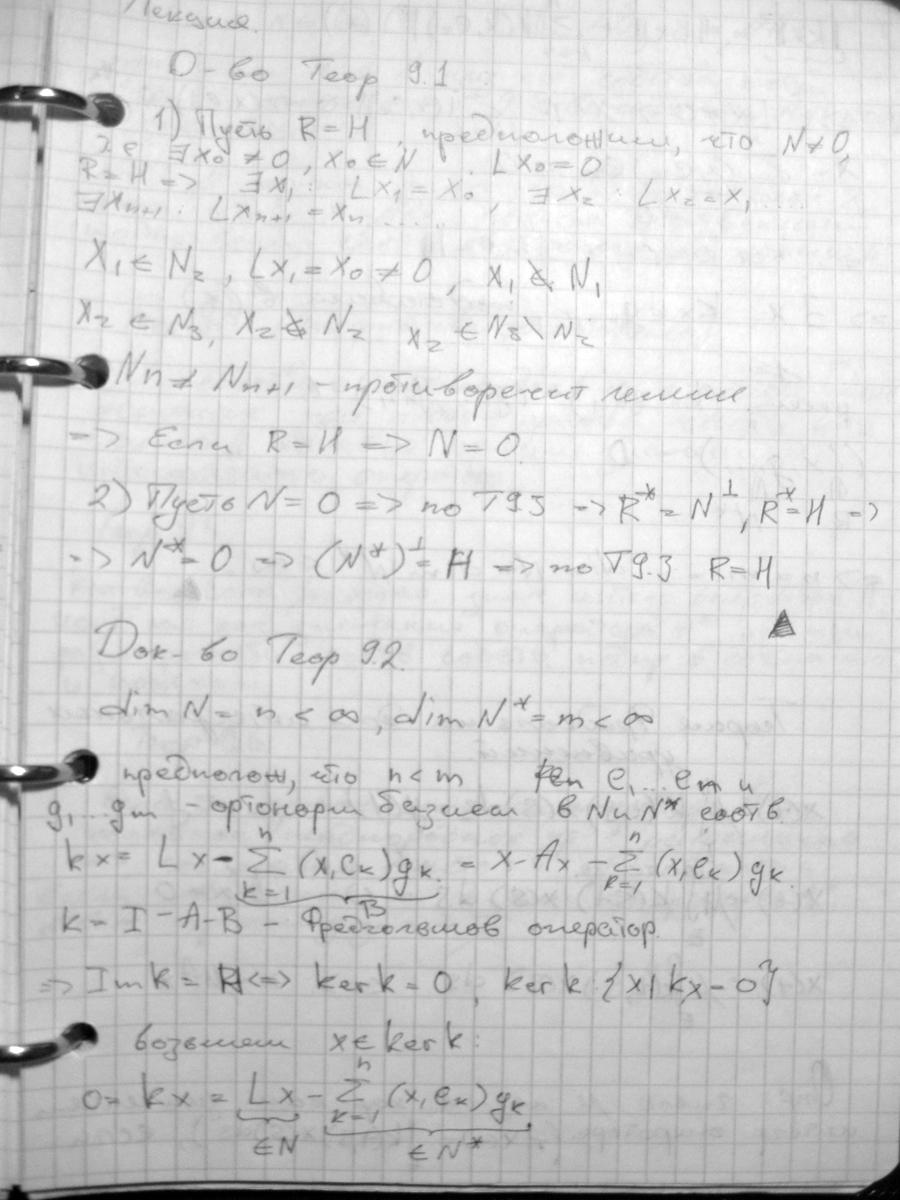 Лекция.
Д-во Теор 9.1
1) Пусть R=H, предположим, что N≠0,
т.е. ∃x₀≠0, x₀∈N. Lx₀=0
R=H => ∃x₁: Lx₁=x₀, ∃x₂: Lx₂=x₁....
∃xₙ₊₁: Lxₙ₊₁=xₙ.....
x₁∈N₂, Lx₁=x₀≠0, x₁∉N₁
x₂∈N₃, x₂∉N₂ x₂∈N₃\N₂
Nₙ≠Nₙ₊₁ - противоречит лемме
=> Если R=H => N=0.
2) Пусть N=0 => по Т9.3 => R*=N^⊥, R*=H =>
=> N*=0 => (N*)^⊥=H => по Т9.3 R=H
▲
Док-во Теор 9.2.
dim N = n < ∞, dim N* = m < ∞
предполож, что n<m e₁...eₙ и
g₁...gₘ - ортонорм базисы в N и N* соотв.
kx = Lx - ∑ₖ₌₁ⁿ (x,eₖ)gₖ = x-Ax - ∑ₖ₌₁ⁿ (x,eₖ)gₖ.
B
k = I-A-B - Фредгольмов оператор.
=> Im k = H <=> ker k = 0, ker k {x|kx=0}
возьмем x∈ker k:
0 = kx = Lx - ∑ₖ₌₁ⁿ (x,eₖ)gₖ
∈N ∈N*